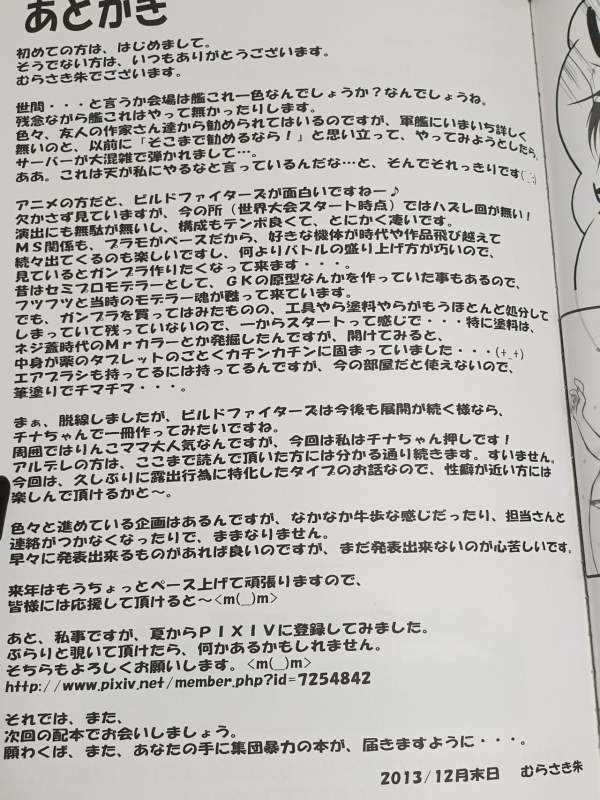 あとがき
初めての方は、はじめまして。
そうでない方は、いつもありがとうございます。
むらさき朱でございます。
世間・・・と言うか会場は艦これ一色なんでしょうか?なんでしょうね。
残念ながら艦これはやって無かったりします。
色々、友人の作家さん達から勧められてはいるのですが、軍艦にいまいち詳しく
無いのと、以前に「そこまで勧めるなら!」と思い立って、やってみようとしたら、
サーバーが大混雑で弾かれまして…。
ああ。これは天が私にやるなと言っているんだな…と、そんでそれっきりです(¯_¯;)
アニメの方だと、ビルドファイターズが面白いですねー♪
欠かさず見ていますが、今の所(世界大会スタート時点)ではハズレ回が無い!
演出にも無駄が無いし、構成もテンポ良くて、とにかく凄いです。
MS関係も、プラモがベースだから、好きな機体が時代や作品飛び越えて
続々出てくるのも楽しいですし、何よりバトルの盛り上げ方が巧いので、
見ているとガンプラ作りたくなって来ます・・・。
昔はセミプロモデラーとして、GKの原型なんかを作っていた事もあるので、
フツフツと当時のモデラー魂が甦って来ています。
でも、ガンプラを買ってはみたものの、工具やら塗料やらがもうほとんど処分して
しまっていて残っていないので、一からスタートって感じで・・・特に塗料は、
ネジ蓋時代のMrカラーとか発掘したんですが、開けてみると、
中身が薬のタブレットのごとくカチンカチンに固まっていました・・・(+_+)
エアブラシも持ってるには持ってるんですが、今の部屋だと使えないので、
筆塗りでチマチマ・・・。
まぁ、脱線しましたが、ビルドファイターズは今後も展開が続く様なら、
チナちゃんで一冊作ってみたいですね。
周囲ではりんこママ大人気なんですが、今回は私はチナちゃん押しです!
アルデレの方は、ここまで読んで頂いた方には分かる通り続きます。すいません。
今回は、久しぶりに露出行為に特化したタイプのお話なので、性癖が近い方には
楽しんで頂けるかと〜。
色々と進めている企画はあるんですが、なかなか牛歩な感じだったり、担当さんと
連絡がつかなくなったりで、ままなりません。
早々に発表出来るものがあれば良いのですが、まだ発表出来ないのが心苦しいです。
来年はもうちょっとペース上げて頑張りますので、
皆様には応援して頂けると〜<m(__)m>
あと、私事ですが、夏からPIXIVに登録してみました。
ぶらりと覗いて頂けたら、何かあるかもしれません。
そちらもよろしくお願いします。<m(__)m>
http://www.pixiv.net/member.php?id=7254842
それでは、また、
次回の配本でお会いしましょう。
願わくば、また、あなたの手に集団暴力の本が、届きますように・・・。
2013/12月末日 むらさき朱